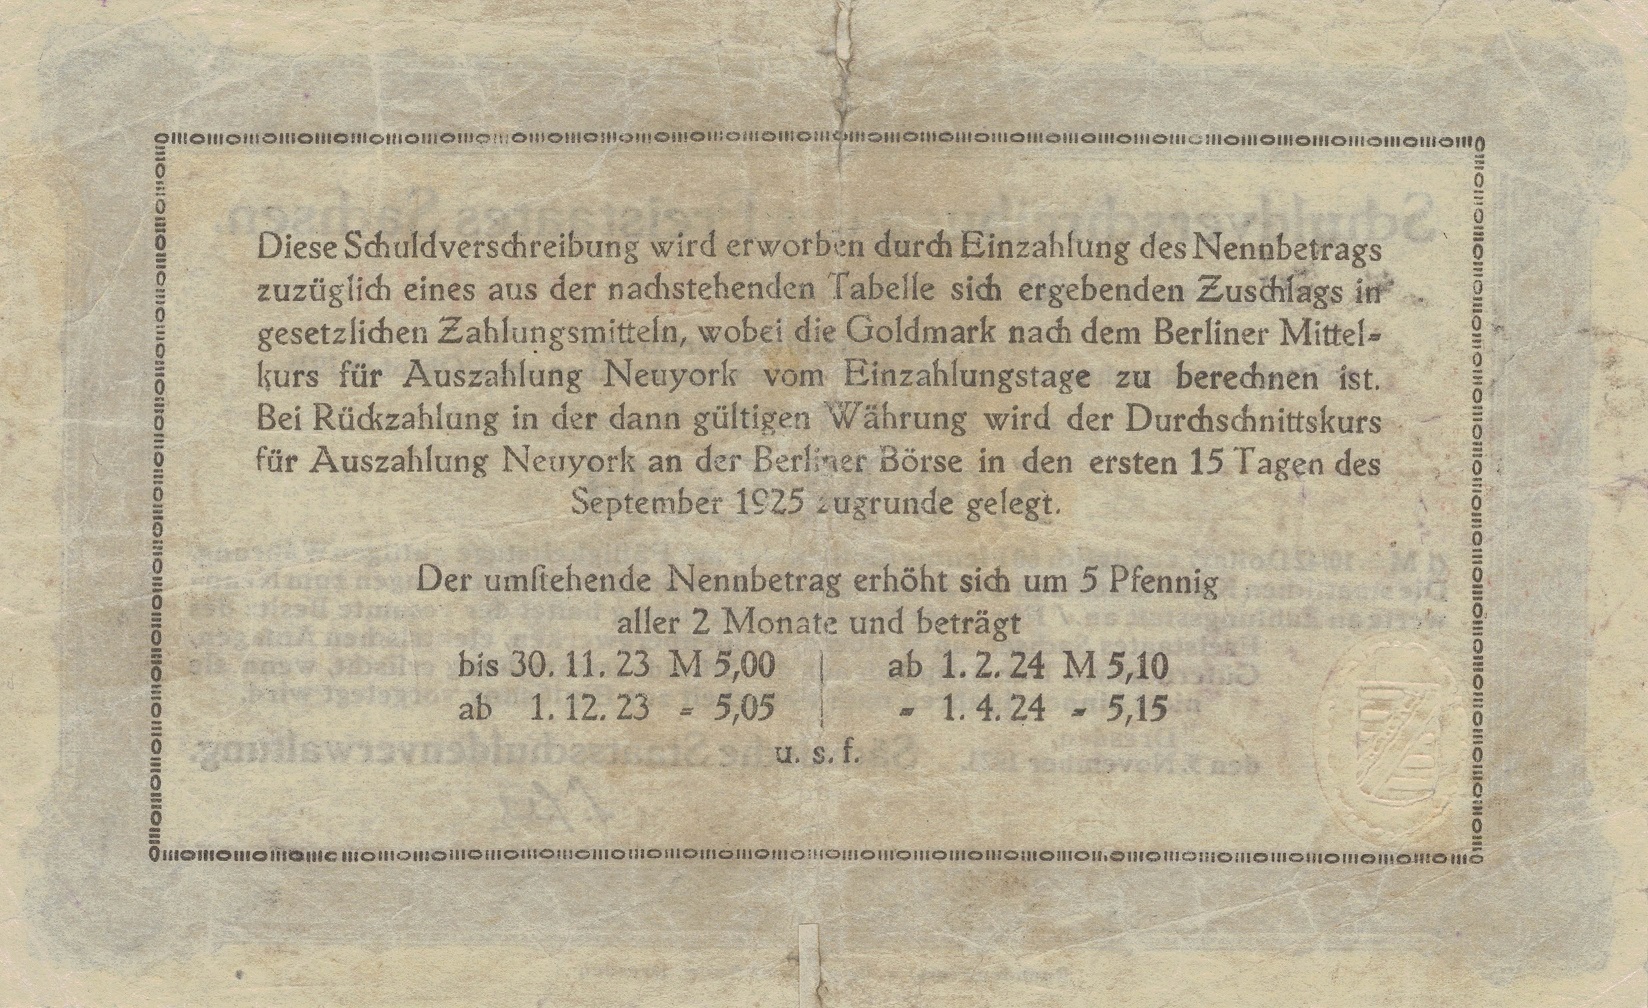 Diese Schuldverschreibung wird erworben durch Einzahlung des Nennbetrags
zuzüglich eines aus der nachstehenden Tabelle sich ergebenden Zuschlags in
gesetzlichen Zahlungsmitteln, wobei die Goldmark nach dem Berliner Mittel-
kurs für Auszahlung Neuyork vom Einzahlungstage zu berechnen ist.
Bei Rückzahlung in der dann gültigen Währung wird der Durchschnittskurs
für Auszahlung Neuyork an der Berliner Börse in den ersten 15 Tagen des
September 1925 zugrunde gelegt.
Der umstehende Nennbetrag erhöht sich um 5 Pfennig
aller 2 Monate und beträgt
bis 30. 11. 23 M 5,00 | ab 1. 2. 24 M 5,10
ab 1. 12. 23 - 5,05 | - 1. 4. 24 - 5,15
u. s. f.